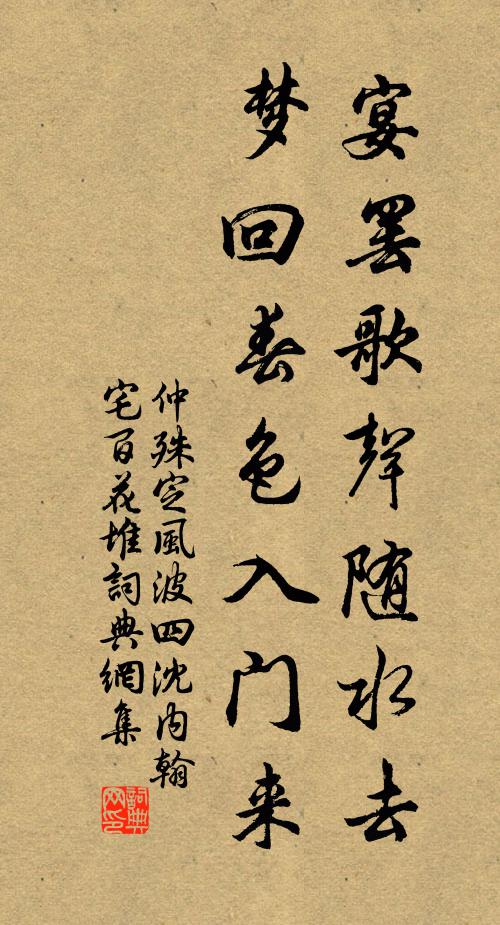 宴罢歌聲随水去
梦回春色入门来
仲殊定風波四沈内翰
宅百花堆詞典網集
詞典
网印